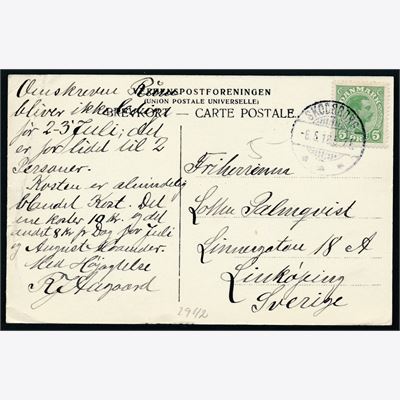 Omskrevne Rum
VERDENSPOSTFORENINGEN
(UNION POSTALE UNIVERSELLE)
BREVKORT — CARTE POSTALE
bliver ikke ledige
før 2-3 Juli; det
er for lidt til 2
Personer.
Kosten er almindelig
blandet Kost. Det
ene koster 10 kr. og det
andet 8 kr pr Dag for Juli
og August Maaneder.
Med Højagtelse
Aagaard
DANMARK
5 ØRE 5
SKODSBORG
Friherrinna
Lotten Palmqvist
Linnégatan 18 A
Linköping
Sverige
2942